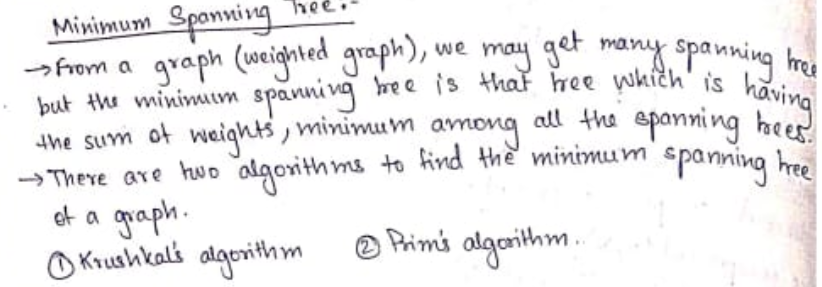 Minimum Spanning Tree:-
→ From a graph (weighted graph), we may get many spanning tree
but the minimum spanning tree is that tree which is having
the sum of weights, minimum among all the spanning trees.
→ There are two algorithms to find the minimum spanning tree
of a graph.
① Krushkal's algorithm ② Prim's algorithm..